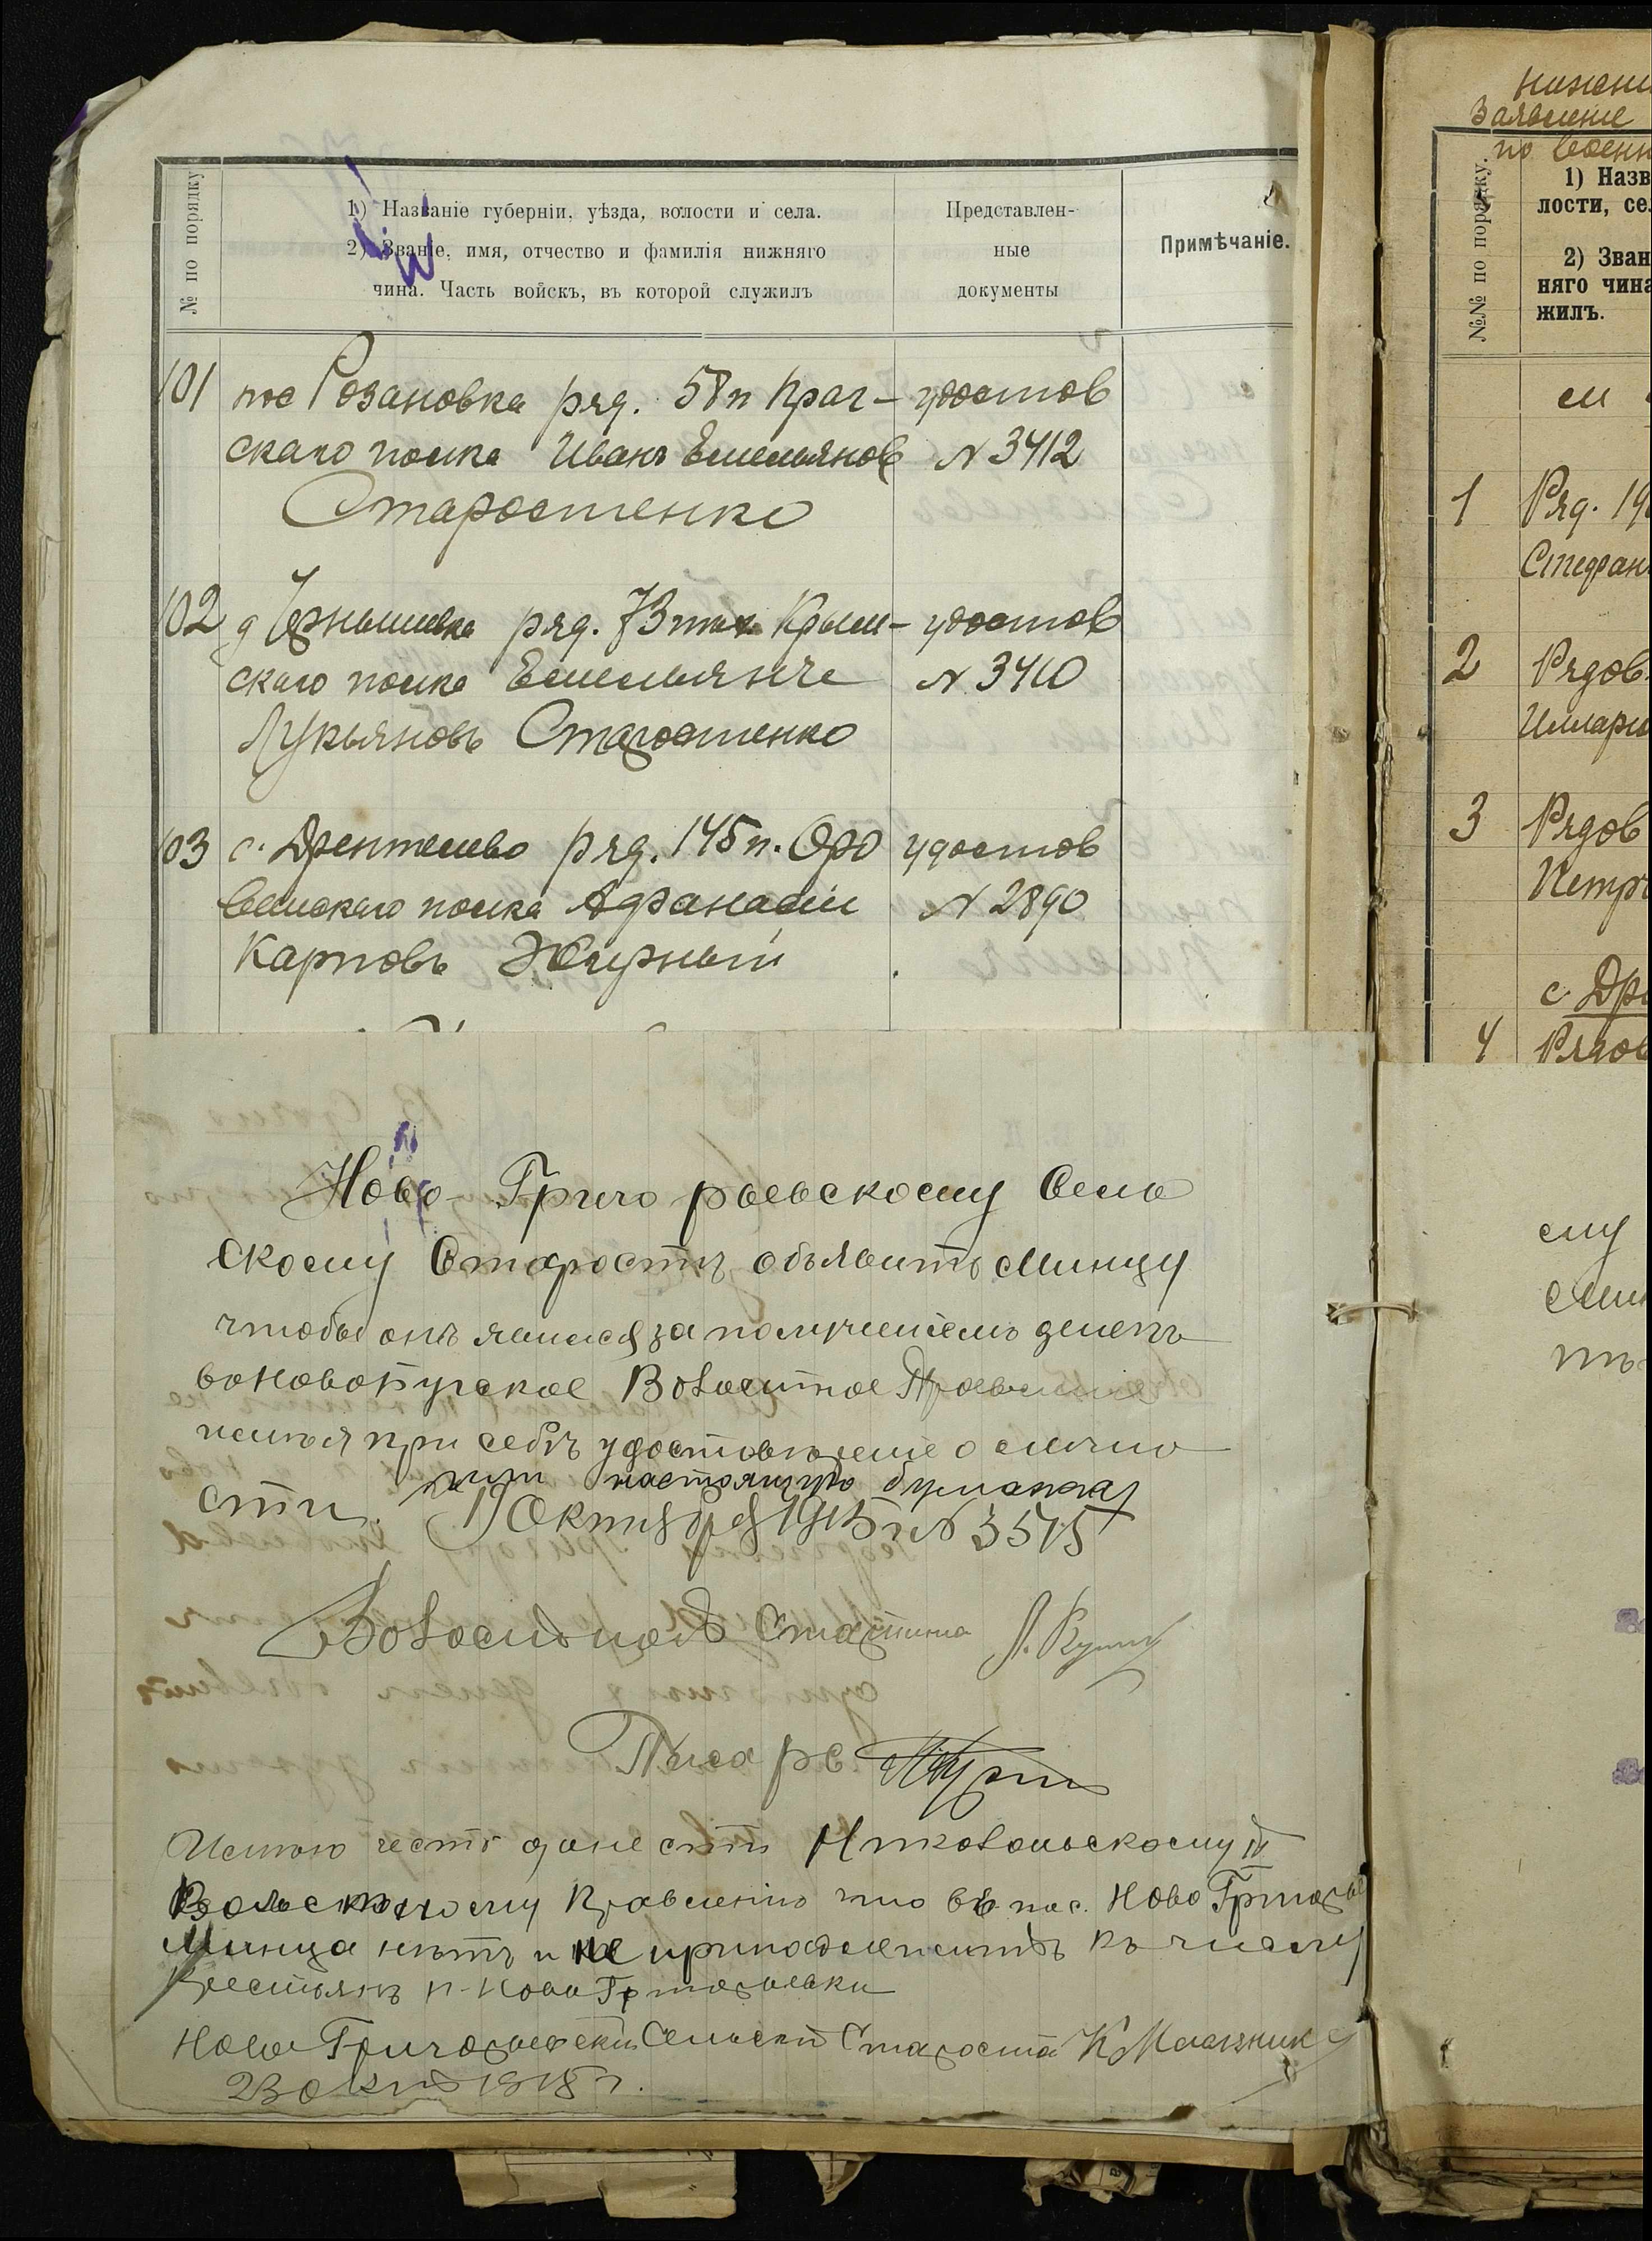 № по порядку
1) Названіе губерніи, уѣзда, волости и села.
2) Званіе, имя, отчество и фамилія нижняго
чина. Часть войскъ, въ которой служилъ
Представлен-
ные
документы
Примѣчаніе.
101 пос Розановка ряд. 58 п Праг- удостов
скаго полка Иванъ Емельянов № 3412
Старостенко
102 д Чернышевка ряд. 73 Крым- удостов
скаго полка Емельянъ № 3410
Лукьяновъ Старостенко
103 с. Дрентельво ряд. 145 п. удостов
полка Афанасій № 2890
Карповъ Жирный
Ново-Григорьевскому Сель
скому Старостѣ объявить Минцу
чтобы онъ явился за полученіемъ денегъ
в Новобугское Волостное Правленіе
имѣя при себѣ удостовѣреніе о лично
сти. или настоящую бумажку
Октября 1915 г № 3575
Волостной Старшина
Писарь
Имѣю честь донести
Правленію что въ пос. Ново
Минца нѣтъ и не принадлежитъ къ числу
Крестьянъ п. Ново Григорьевки
Ново Григорьевскій Сельскій Староста К Мельник
23 окт 1915 г.
нижни
Заявление
по военн
№№ по порядку.
1) Назв
лости, сел
2) Зван
няго чина
жилъ.
1 Ряд. 19
Стефан
2 Рядов.
Иллари
3 Рядов
Петр
с. Дре
4 Рядов
ему